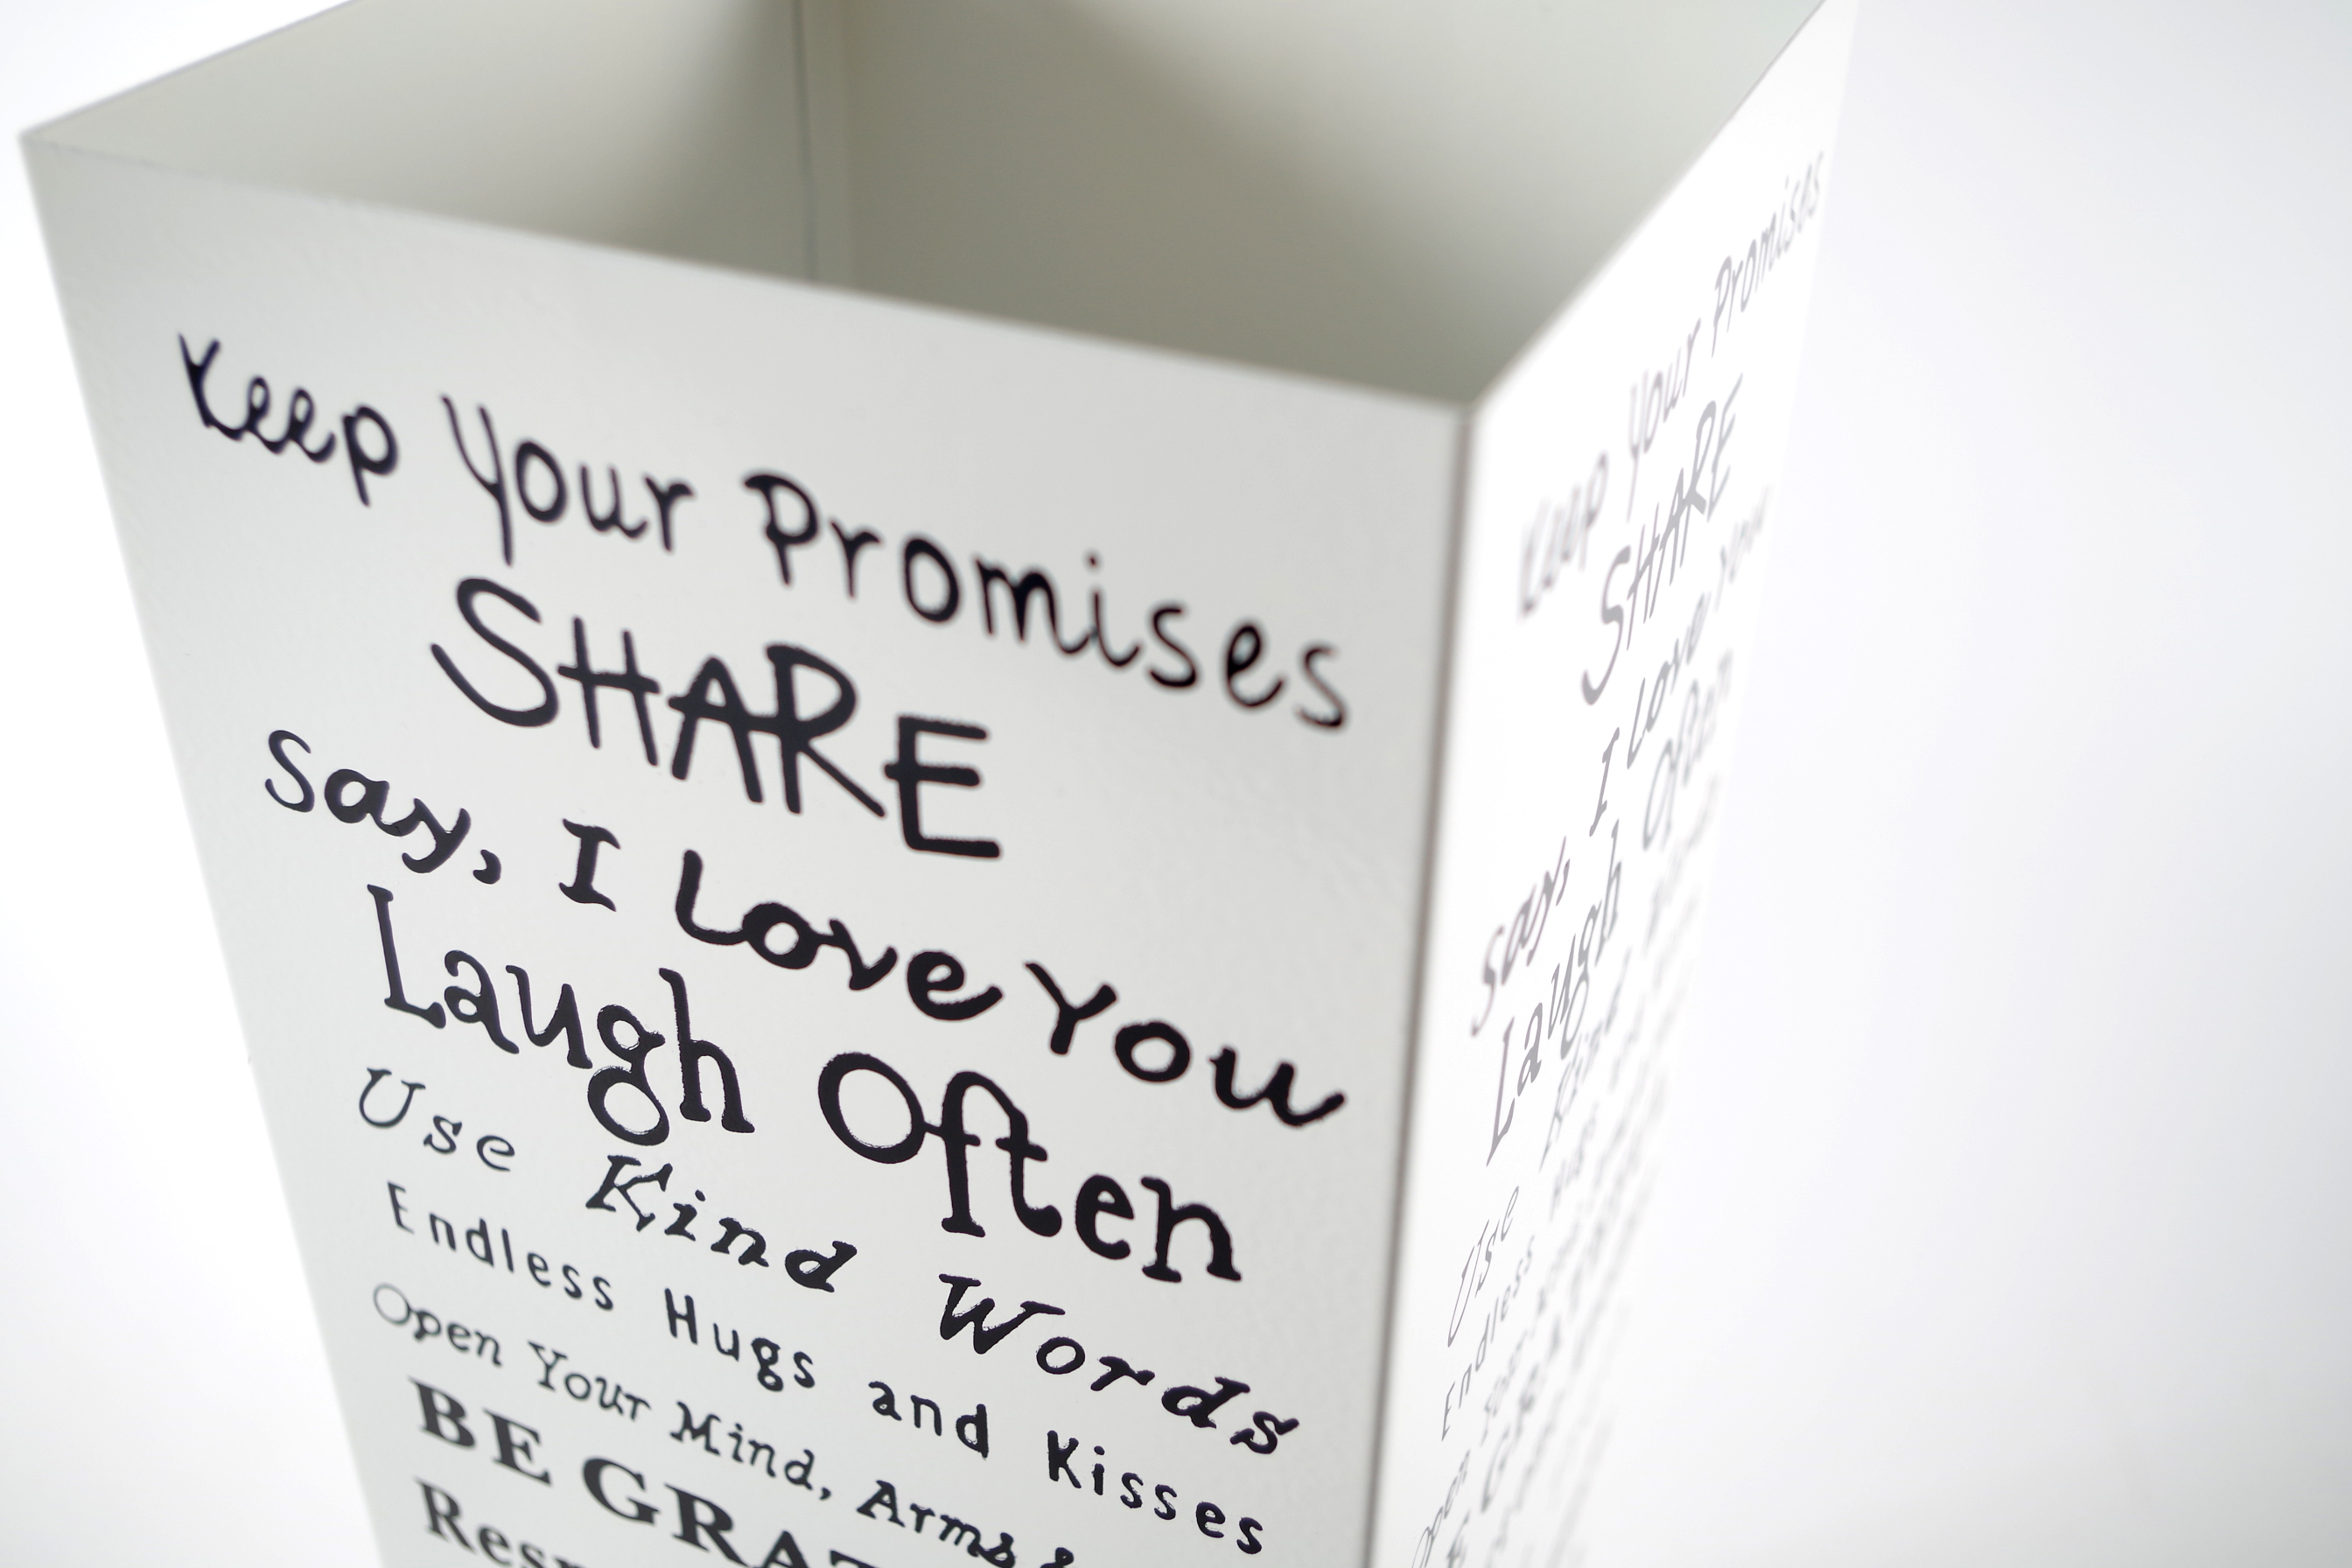 Keep Your Promises
SHARE
Say, I Love You
Laugh Often
Use Kind Words
Endless Hugs and Kisses
Open Your Mind, Arms &
BE GRAT
Resp
Keep Your Promises
SHARE
Say, I Love You
Laugh Often
Use Kind
Endless
Open